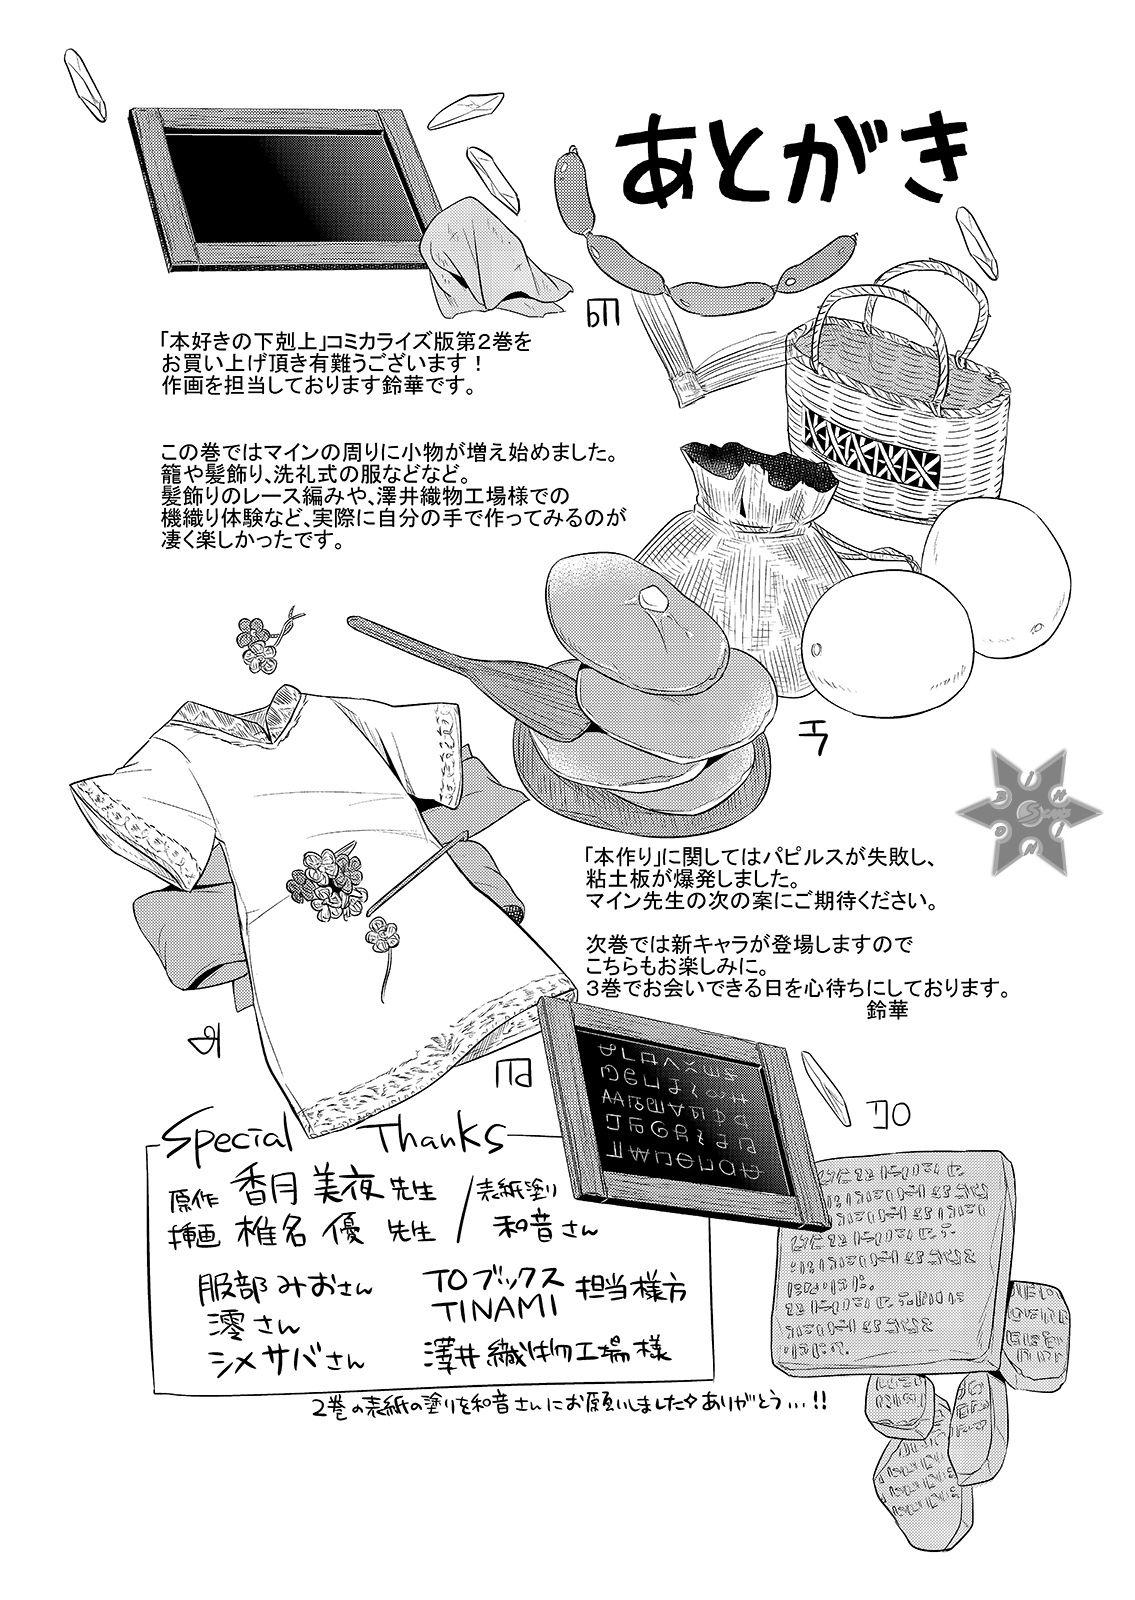 あとがき
「本好きの下剋上」コミカライズ版第２巻を
お買い上げ頂き有難うございます！
作画を担当しております鈴華です。
この巻ではマインの周りに小物が増え始めました。
籠や髪飾り、洗礼式の服などなど。
髪飾りのレース編みや、澤井織物工場様での
機織り体験など、実際に自分の手で作ってみるのが
凄く楽しかったです。
「本作り」に関してはパピルスが失敗し、
粘土板が爆発しました。
マイン先生の次の案にご期待ください。
次巻では新キャラが登場しますので
こちらもお楽しみに。
３巻でお会いできる日を心待ちにしております。
鈴華
Special Thanks
原作 香月 美夜 先生
挿画 椎名 優 先生
表紙塗り
和音さん
服部 みおさん
澪さん
シメサバさん
TOブックス
TINAMI
担当様方
澤井織物工場様
2巻の表紙の塗りを和音さんにお願いしました ありがとう…!!